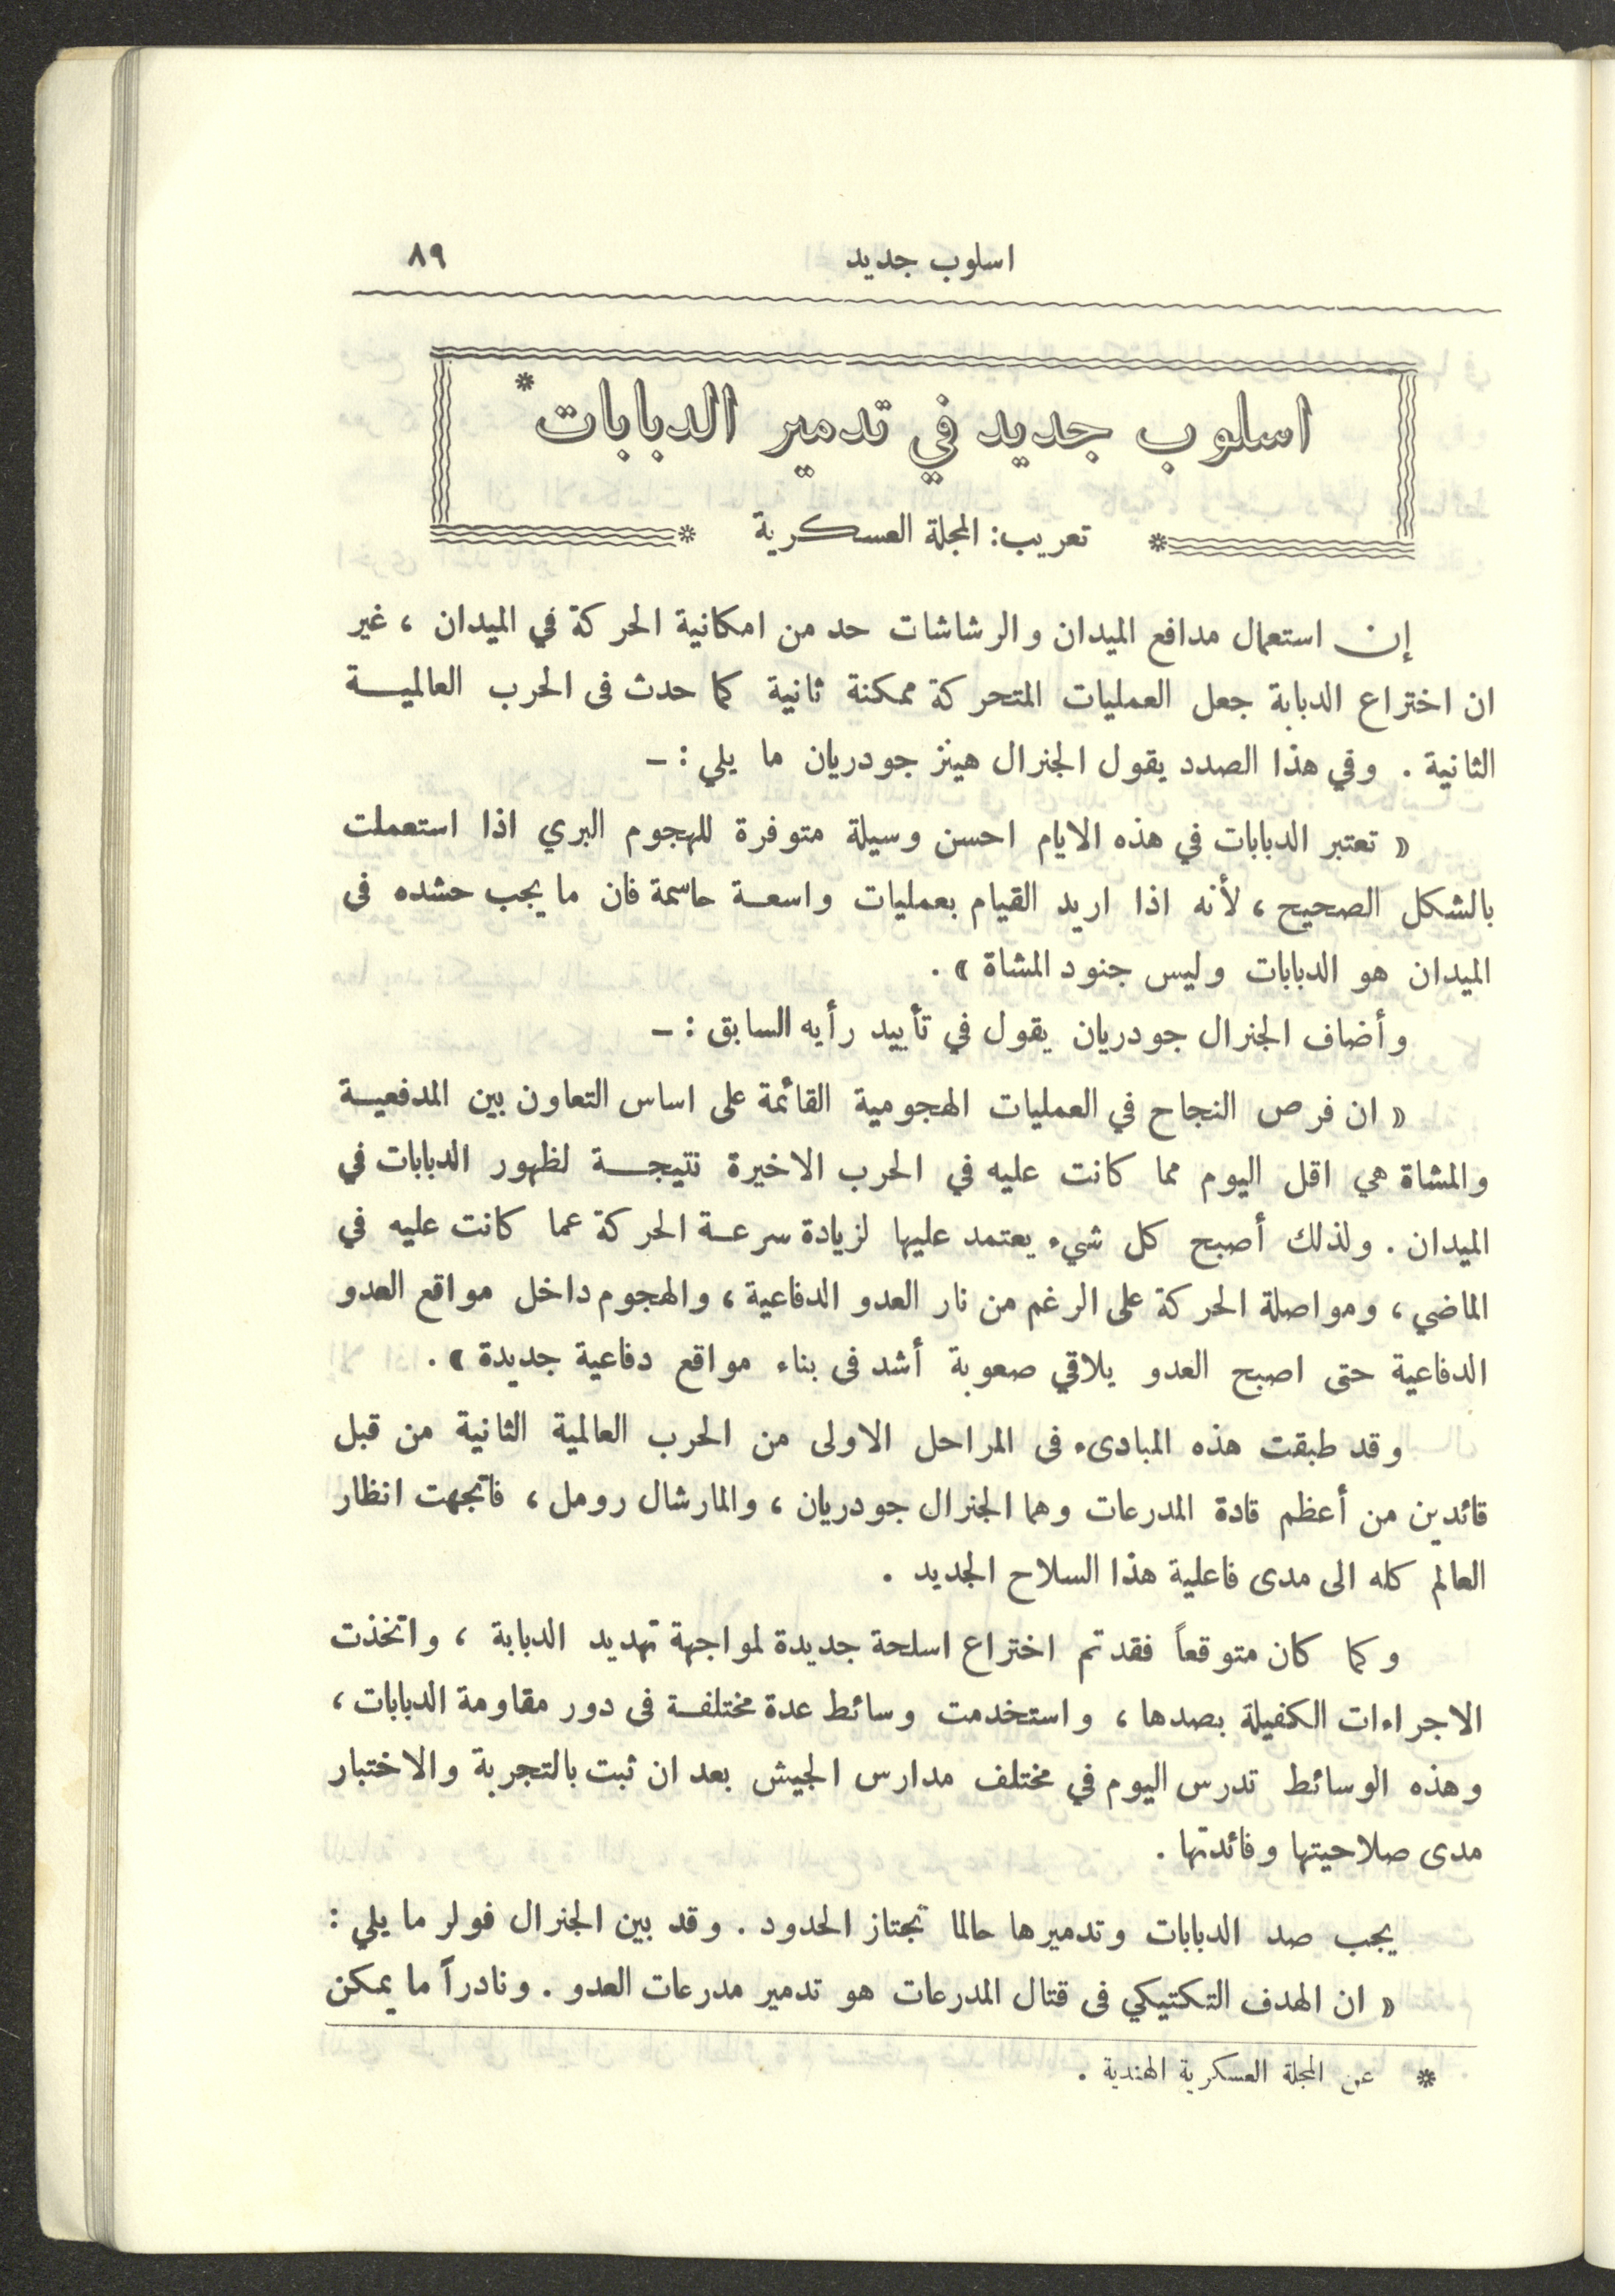 اسلوب جديد ٨٩
اسلوب جديد في تدمير الدبابات*
* تعريب: المجلة العسكرية *
إن استعمال مدافع الميدان والرشاشات حد من امكانية الحركة في الميدان ، غير
ان اختراع الدبابة جعل العمليات المتحركة ممكنة ثانية كما حدث فى الحرب العالمية
الثانية . وفي هذا الصدد يقول الجنرال هينز جودريان ما يلي : –
« تعتبر الدبابات في هذه الايام احسن وسيلة متوفرة للهجوم البري اذا استعملت
بالشكل الصحيح ، لأنه اذا اريد القيام بعمليات واسعة حاسمة فان ما يجب حشده فى
الميدان هو الدبابات وليس جنود المشاة » .
وأضاف الجنرال جودريان يقول في تأييد رأيه السابق : –
« ان فرص النجاح في العمليات الهجومية القائمة على اساس التعاون بين المدفعية
والمشاة هي اقل اليوم مما كانت عليه في الحرب الاخيرة نتيجة لظهور الدبابات في
الميدان . ولذلك أصبح كل شيء يعتمد عليها لزيادة سرعة الحركة عما كانت عليه في
الماضي ، ومواصلة الحركة على الرغم من نار العدو الدفاعية ، والهجوم داخل مواقع العدو
الدفاعية حتى اصبح العدو يلاقي صعوبة أشد فى بناء مواقع دفاعية جديدة » .
وقد طبقت هذه المبادىء فى المراحل الاولى من الحرب العالمية الثانية من قبل
قائدين من أعظم قادة المدرعات وهما الجنرال جودريان ، والمارشال رومل ، فاتجهت انظار
العالم كله الى مدى فاعلية هذا السلاح الجديد .
وكما كان متوقعاً فقد تم اختراع اسلحة جديدة لمواجهة تهديد الدبابة ، واتخذت
الاجراءات الكفيلة بصدها ، واستخدمت وسائط عدة مختلفة فى دور مقاومة الدبابات ،
وهذه الوسائط تدرس اليوم في مختلف مدارس الجيش بعد ان ثبت بالتجربة والاختبار
مدى صلاحيتها وفائدتها .
يجب صد الدبابات وتدميرها حالما تجتاز الحدود . وقد بين الجنرال فولر ما يلي :
« ان الهدف التكتيكي فى قتال المدرعات هو تدمير مدرعات العدو . ونادراً ما يمكن
* عن المجلة العسكرية الهندية .